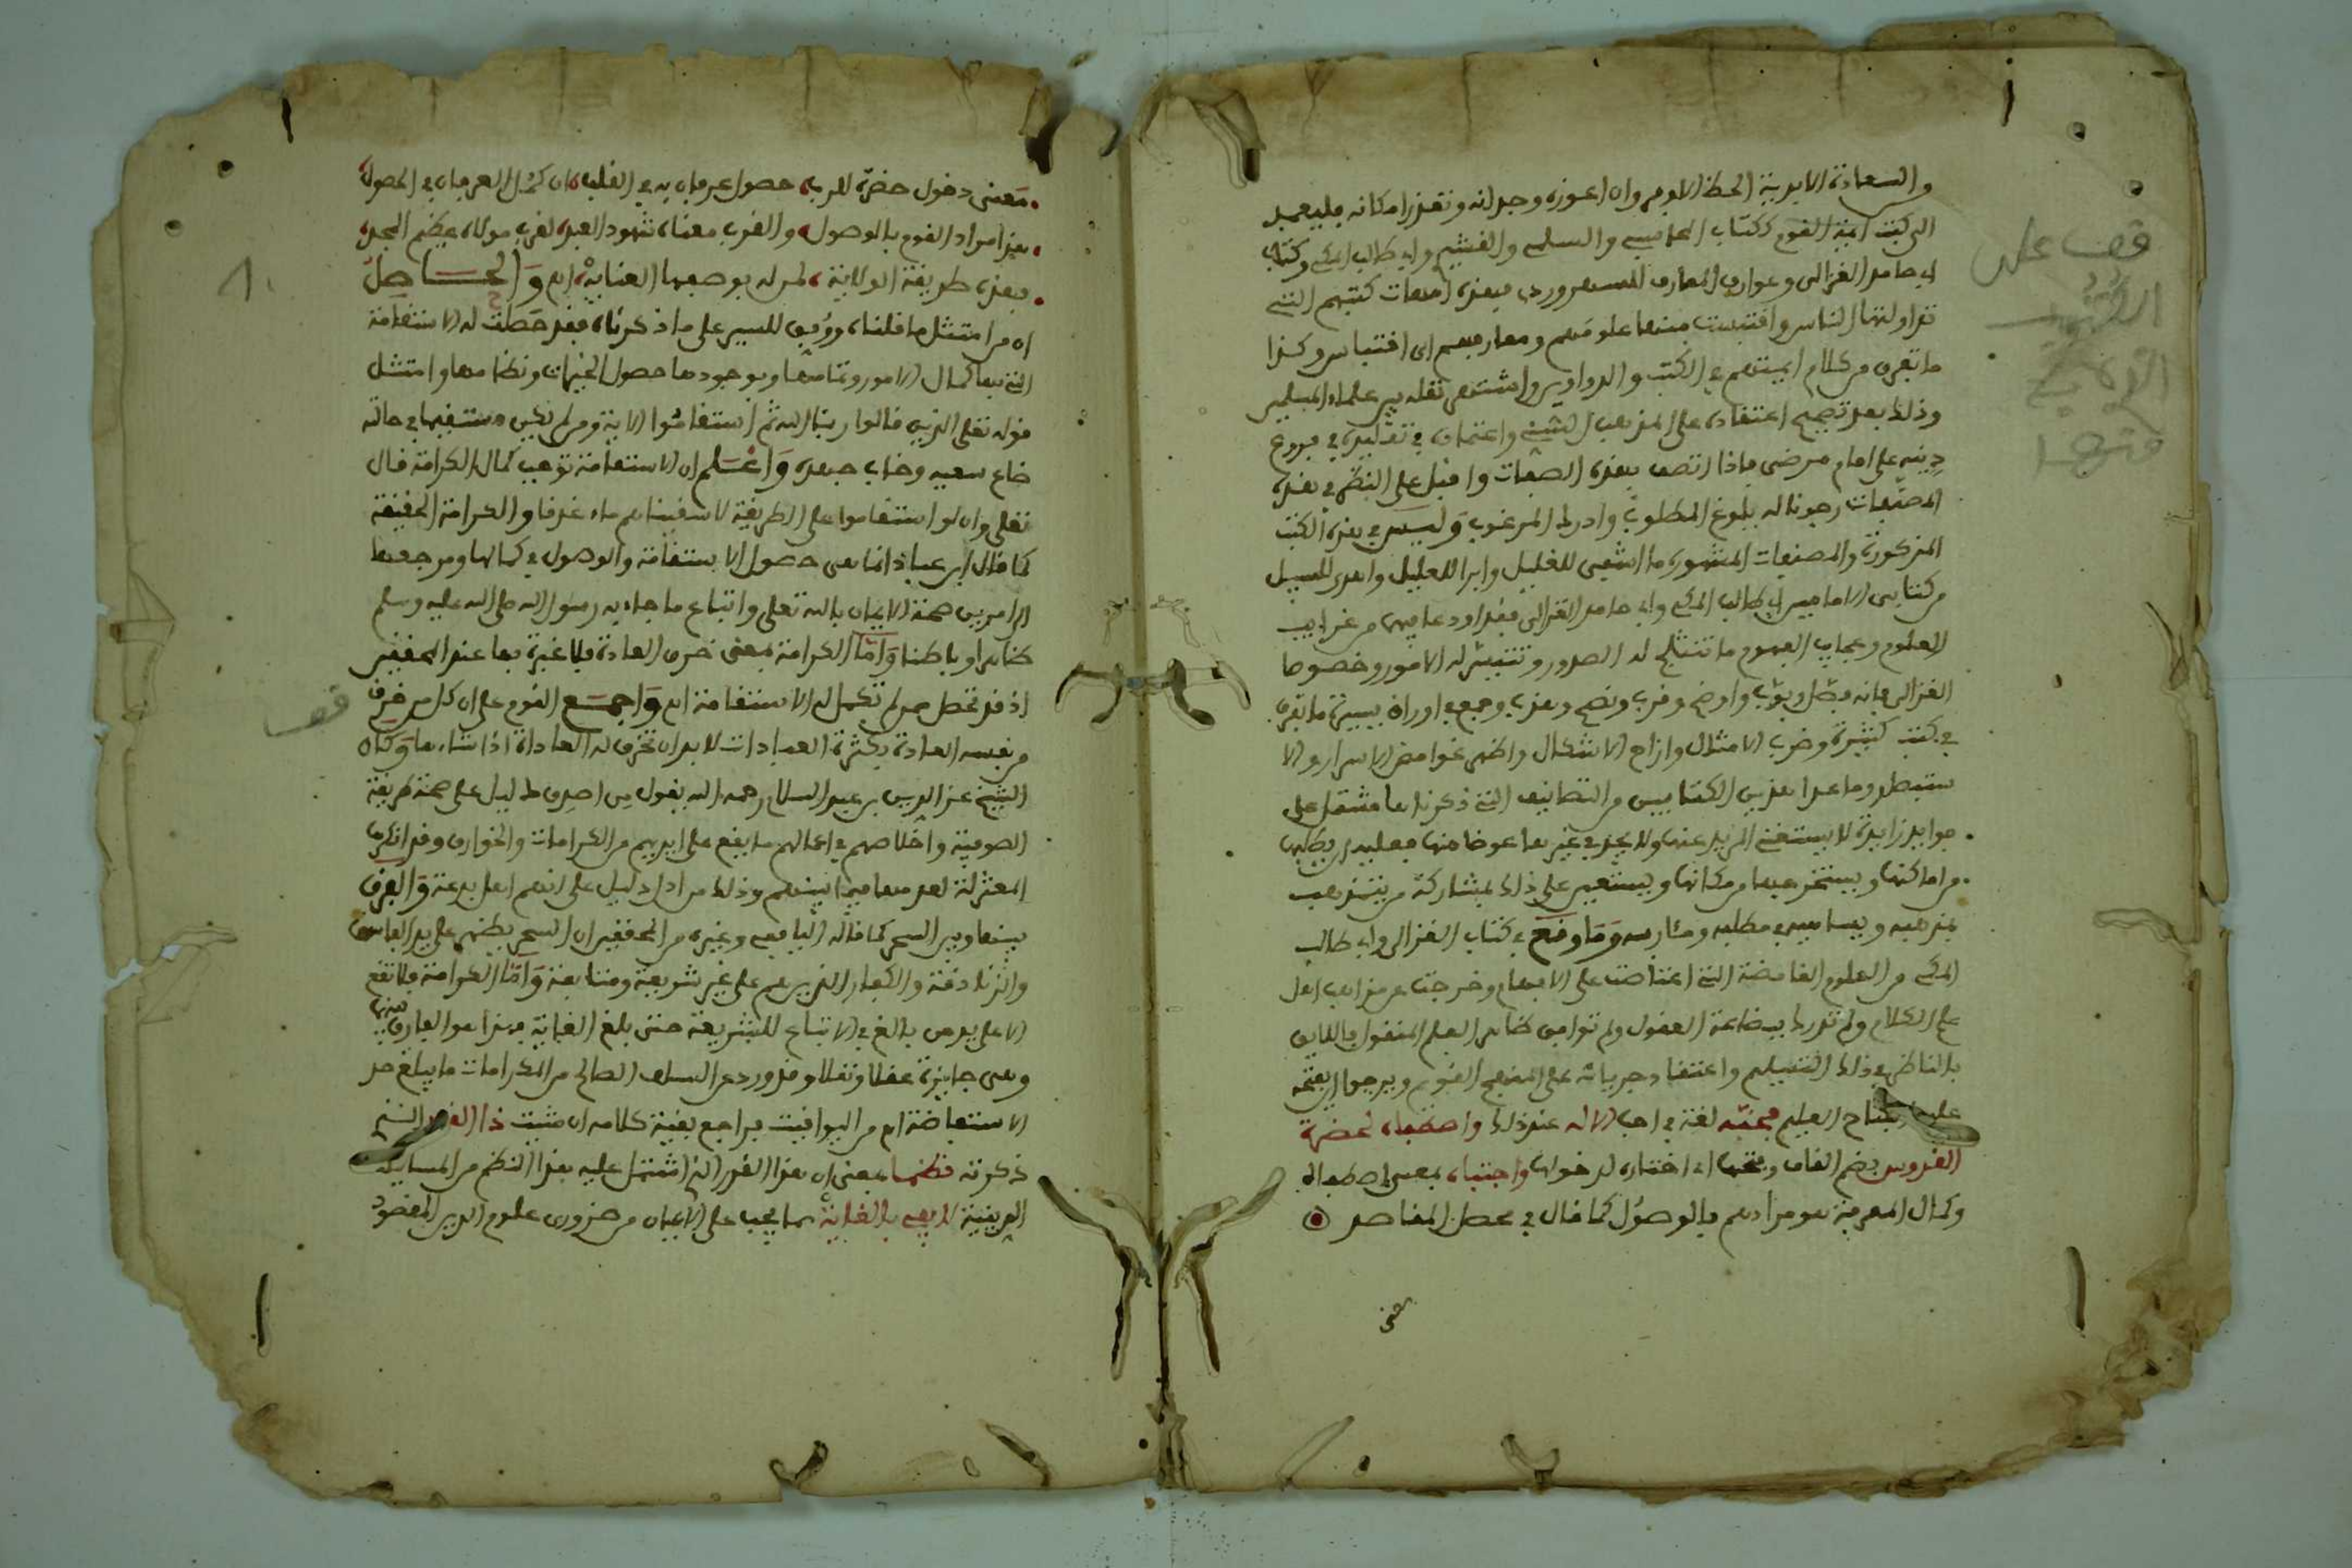 والسعادة الابدية الحظ الاوفر وان اعوزه وجدانه وتعذر امكانه فليعمد
الى كتب ايمة القوم ككتاب المحاسبي والسلمي والقشيري وابي طالب المكي وكتاب
ابي حامد الغزالى وعوارف المعارف للسهروردي فهذه امهات كتبهم التي
تداولتها الناس واقتبست منها علومهم ومعارفهم اي اقتباس وكذا
ما تفرق من كلام ايمتهم في الكتب والدواوين واشتهر نقله بين علماء المسلمين
وذلك بعد تصحيح اعتقاده على المذهب السني واعتماده في تقليده في فروع
دينه على امام مرضي فاذا اتصف بهذه الصفات واقبل على النظر في هذه
المصنفات رجونا له بلوغ المطلوب وادراك المرغوب وليس في هذه الكتب
المذكورة والمصنفات المشهورة ما اشفى للغليل وابرا للعليل واهدى للسبيل
من كتابى الامامين ابي طالب المكي وابي حامد الغزالى فقد اودعا فيهما من غرايب
العلوم وعجايب الفهوم ما تنثلج له الصدور وتتيسر له الامور وخصوصا
الغزالى فانه فصل وبوب واوضح وقرب ونصح وهذب وجمع في اوراق يسيرة ما تفرق
في كتب كثيرة وضرب الامثال وازاح الاشكال واظهر غوامض الاسرار والا
ستبطر وما عدا هذين الكتابين من التصانيف التي ذكرناها مشتمل على
فوايد زايدة لا يستغني المريد عنها ولا يجد في غيرها عوضا منها فعليه ان يطلبها
من اماكنها ويستخرجها من مكانها ويستعين على ذلك بمشاركة من يتمذهب
بمذهبه ويساهمه في مطلبه ومئاربه وما وقع في كتاب الغزالى وابي طالب
المكي من العلوم الغامضة التي اعتاصت على الافهام وخرجت عن مذاهب اهل
علم الكلام ولم تدرك ببضاعة العقول ولم توافق ظاهر العلم المنقول فاللايق
بالناظر في ذلك التسليم واعتقاد جريانه على المنهج القويم ويرجوا ان يفتحه
عليه الفتاح العليم فحبه لغة في احب الاله عند ذلك واصطفاه لحضرة
القدوس بضم القاف وفتحها اي اختاره لدخولها واجتباه بمعنى اصطفاه
وكمال المعرفة هو مرادهم بالوصول كما قال في محصل المقاصد
معنى
قف على
الكتب
التي
منها
معنى دخول حضرة الرب حصول عرفان به في القلب فان كمل العرفان في الحصول
فهذا مراد القوم بالوصول والقرب معناه شهود العبد لقرب مولاه عظيم المجد
فهذه طريقة الولاية لمن له بوصفها العناية اهـ والحاصل
ان من امتثل ما قلناه ووفق للسير على ما ذكرناه فقد حصلت له الاستقامة
التي بها كمال الامور وتمامها وبوجودها حصول الخيرات ونظامها وامتثل
قوله تعلى الذين قالوا ربنا الله ثم استقاموا الاية ومن لم يكن مستقيما في حالته
ضاع سعيه وخاب جهده واعلم ان الاستقامة توهب كمال الكرامة قال
تعلى وان لو استقاموا على الطريقة لاسقيناهم ماء غدقا والكرامة الحقيقة
كما قال ابن عباد انما هى حصول الاستقامة والوصول في كمالها ومرجعها
الى امرين صحة الايمان بالله تعلى واتباع ما جاء به رسول الله صلى الله عليه وسلم
ظاهرا وباطنا واما الكرامة بمعنى خرق العادة فلا عبرة بها عند المحققين
اذ قد تحصل لمن لم تكمل له الاستقامة اهـ واجمع القوم على ان كل من خرق
من نفسه العادة بكثرة العبادات لا بد ان تخرق له العادة اذا شاءها وكان
الشيخ عز الدين بن عبد السلام رحمه الله يقول من اصدق دليل على صحة طريقة
الصوفية واخلاصهم في اعمالهم ما يقع على ايديهم من الكرامات والخوارق وقد انكرت
المعتزلة لعدمها فيما بينهم وذلك من ادل دليل على انهم اهل بدعة والفرق
بينها وبين السحر كما قاله اليافعي وغيره من المحققين ان السحر يظهر على يد الفاسق
والزنادقة والكفار الذين هم على غير شريعة ومتابعة واما الكرامة فلا تقع
الا على يد من بالغ في الاتباع للشريعة حتى بلغ الغاية فهذا هو الفارق بينهما
وهى جايزة عقلا ونقلا وقد ورد عن السلف الصالح من الكرامات ما يبلغ حد
الاستفاضة اهـ من اليواقيت فراجع بقية كلامه ان شيت ذا القدر الذي
ذكرته نظما بمعنى ان هذا القدر الذي اشتمل عليه هذا النظم من المسايل
الدينية لا يفي بالغاية مما يجب على الاعيان من ضروري علوم الدين المقصود
قف